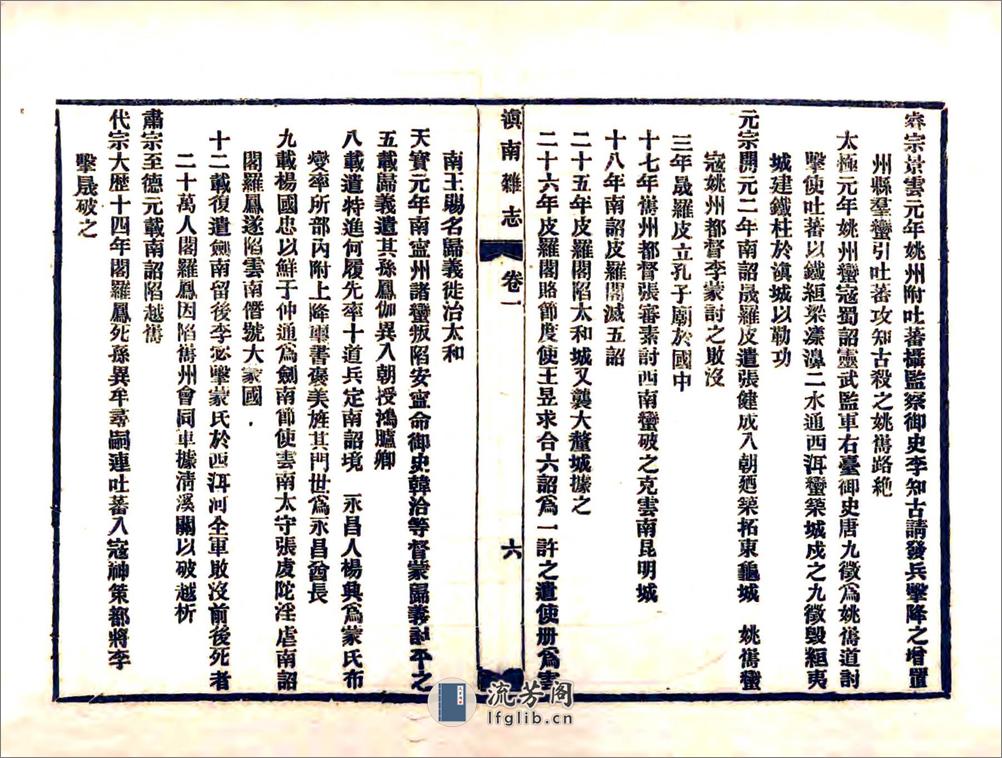 睿宗景雲元年姚州附吐蕃攝監察御史李知古請發兵擊降之增置
州縣羣蠻引吐蕃攻知古殺之姚嶲路絶
太極元年姚州蠻寇蜀詔靈武監軍右臺御史唐九徵爲姚嶲道討
擊使吐蕃以鐵絙梁漾濞二水通西洱蠻築城戍之九徵毀絙夷
城建鐵柱於滇城以勒功
元宗開元二年南詔晟羅皮遣張健成入朝廼築拓東龜城　姚嶲蠻
寇姚州都督李蒙討之敗沒
三年晟羅皮立孔子廟於國中
十七年嶲州都督張審素討西南蠻破之克雲南昆明城
十八年南詔皮羅閣滅五詔
二十五年皮羅閣陷太和城又襲大釐城據之
二十六年皮羅閣賂節度使王昱求合六詔爲一許之遣使册爲雲
滇南雜志
卷一
六
南王賜名歸義徙治太和
天寶元年南寧州諸蠻叛陷安寧命御史韓洽等督蒙歸義討平之
五載歸義遣其孫鳳伽異入朝授鴻臚卿
八載遣特進何履先率十道兵定南詔境　永昌人楊典爲蒙氏布
燮率所部內附上降璽書褒美旌其門世爲永昌酋長
九載楊國忠以鮮于仲通爲劍南節使雲南太守張虔陀淫虐南詔
閣羅鳳遂陷雲南僭號大蒙國
十二載復遣劍南留後李宓擊蒙氏於西洱河全軍敗沒前後死者
二十萬人閣羅鳳因陷嶲州會同軍據清溪關以破越析
肅宗至德元載南詔陷越嶲
代宗大歷十四年閣羅鳳死孫異牟尋嗣連吐蕃入寇神策都將李
擊晟破之
流芳阁
lfglib.cn